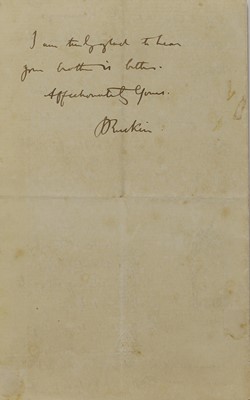 I am truly glad to hear
your brother is better.
Affectionately Yours.
JRuskin